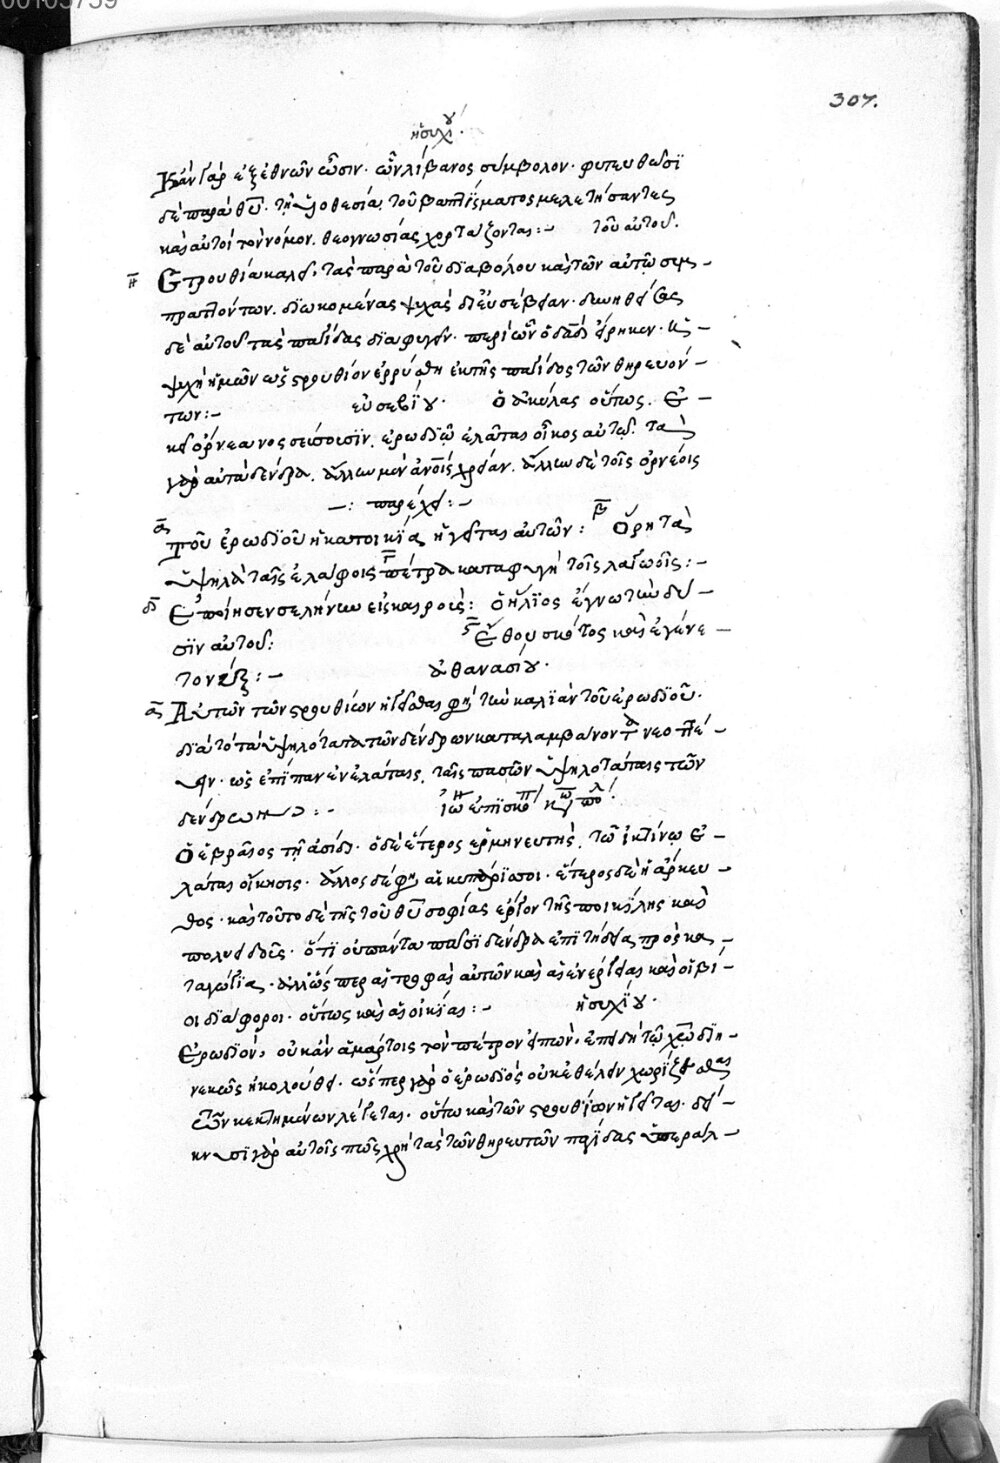 307.
ἡσυχίου.
Κἂν γὰρ ἐξ ἐθνῶν ὦσιν. ὧν λίβανος σύμβολον. φυτευθῶσι
δὲ παρὰ θυ. τῇ υἱοθεσίᾳ τοῦ βαπτίσματος μελετήσαντες
καὶ αὐτοὶ τὸν νόμον. θεογνωσίας χορτάζονται:- τοῦ αὐτοῦ.
η Στρουθία καλεῖ, τὰς παρὰ τοῦ διαβόλου καὶ τῶν αὐτῷ συμ-
πραττόντων. διωκομένας ψυχὰς δι' εὐσέβειαν.
δὲ αὐτοῦ τὰς παγίδας διαφυγεῖν. περὶ ὧν ὁ δαδ εἴρηκεν. ἡ -
ψυχὴ ἡμῶν ὡς στρουθίον ἐρρύσθη ἐκ τῆς παγίδος τῶν θηρευόν-
των:- εὐσεβίου. Ὁ ἀκύλας οὕτως. Ἐ-
κεῖ ὄρνεα νοσσεύσουσιν. ἐρωδιῷ ἐλάται οἶκος αὐτοῦ. τὰ
γὰρ αὐτὰ δένδρα. ἄλλην μὲν ἀνοις χρείαν. ἄλλην δὲ τοῖς ὀρνέοις
-: παρέχει:-
α Τοῦ ἐρωδιοῦ ἡ κατοικία ἡγεῖται αὐτῶν: β Ὄρη τὰ
ὑψηλὰ ταῖς ἐλάφοις γ πέτρα καταφυγὴ τοῖς λαγωοῖς:-
δ Ἐποίησεν σελήνην εἰς καιρούς: ὁ ἥλιος ἔγνω τὴν δύ-
σιν αὐτοῦ: ϛ Ἔθου σκότος καὶ ἐγένε-
το νύξ:- ἀθανασίου.
α Αὐτῶν τῶν στρουθίων ἡγεῖσθαι φησὶ τὴν καλιὰν τοῦ ἐρωδιοῦ.
διὰ τὸ τὰ ὑψηλότατα τῶν δένδρων καταλαμβάνοντα νεοττεύ-
ειν. ὡς ἐπίπαν ἐν ἐλάταις. ταῖς πασῶν ὑψηλοτάταις τῶν
δένδρων:-
Ὁ ἑβραῖος τῇ ἀσίδᾳ. ὁ δὲ ἕτερος ἑρμηνευτής. τῷ ἰκτίνῳ ἐ-
λάται οἴκησις. ἄλλος δέ φησιν αἱ κυπάρισσοι. ἕτερος δὲ ἡ ἄρκευ-
θος. καὶ τοῦτο δὲ τῆς τοῦ θυ σοφίας ἔργον τῆς ποικίλης καὶ
πολυειδοῦς. ὅτι οὐ πάντα πᾶσι δένδρα ἐπιτήδεια πρὸς κα-
ταγώγια. ἀλλ' ὥσπερ αἱ τροφαὶ αὐτῶν καὶ αἱ ἐνέργειαι καὶ οἱ βί-
οι διάφοροι. οὕτως καὶ αἱ οἰκίαι:- ἡσυχίου.
Ἐρωδιόν, οὐκ ἂν ἁμάρτοις τὸν πέτρον εἰπών, ἐπειδὴ τῷ χω διη-
νεκῶς ἠκολούθει. ὥσπερ γὰρ ὁ ἐρωδιὸς οὐκ ἐθέλειν χωρίζεσθαι
τῶν κεκτημένων λέγεται. οὕτω καὶ τῶν στρουθίων ἡγεῖται. δεί-
κνυσι γὰρ αὐτοῖς πῶς χρὴ τὰς τῶν θηρευτῶν παγίδας ὑπεραλ-